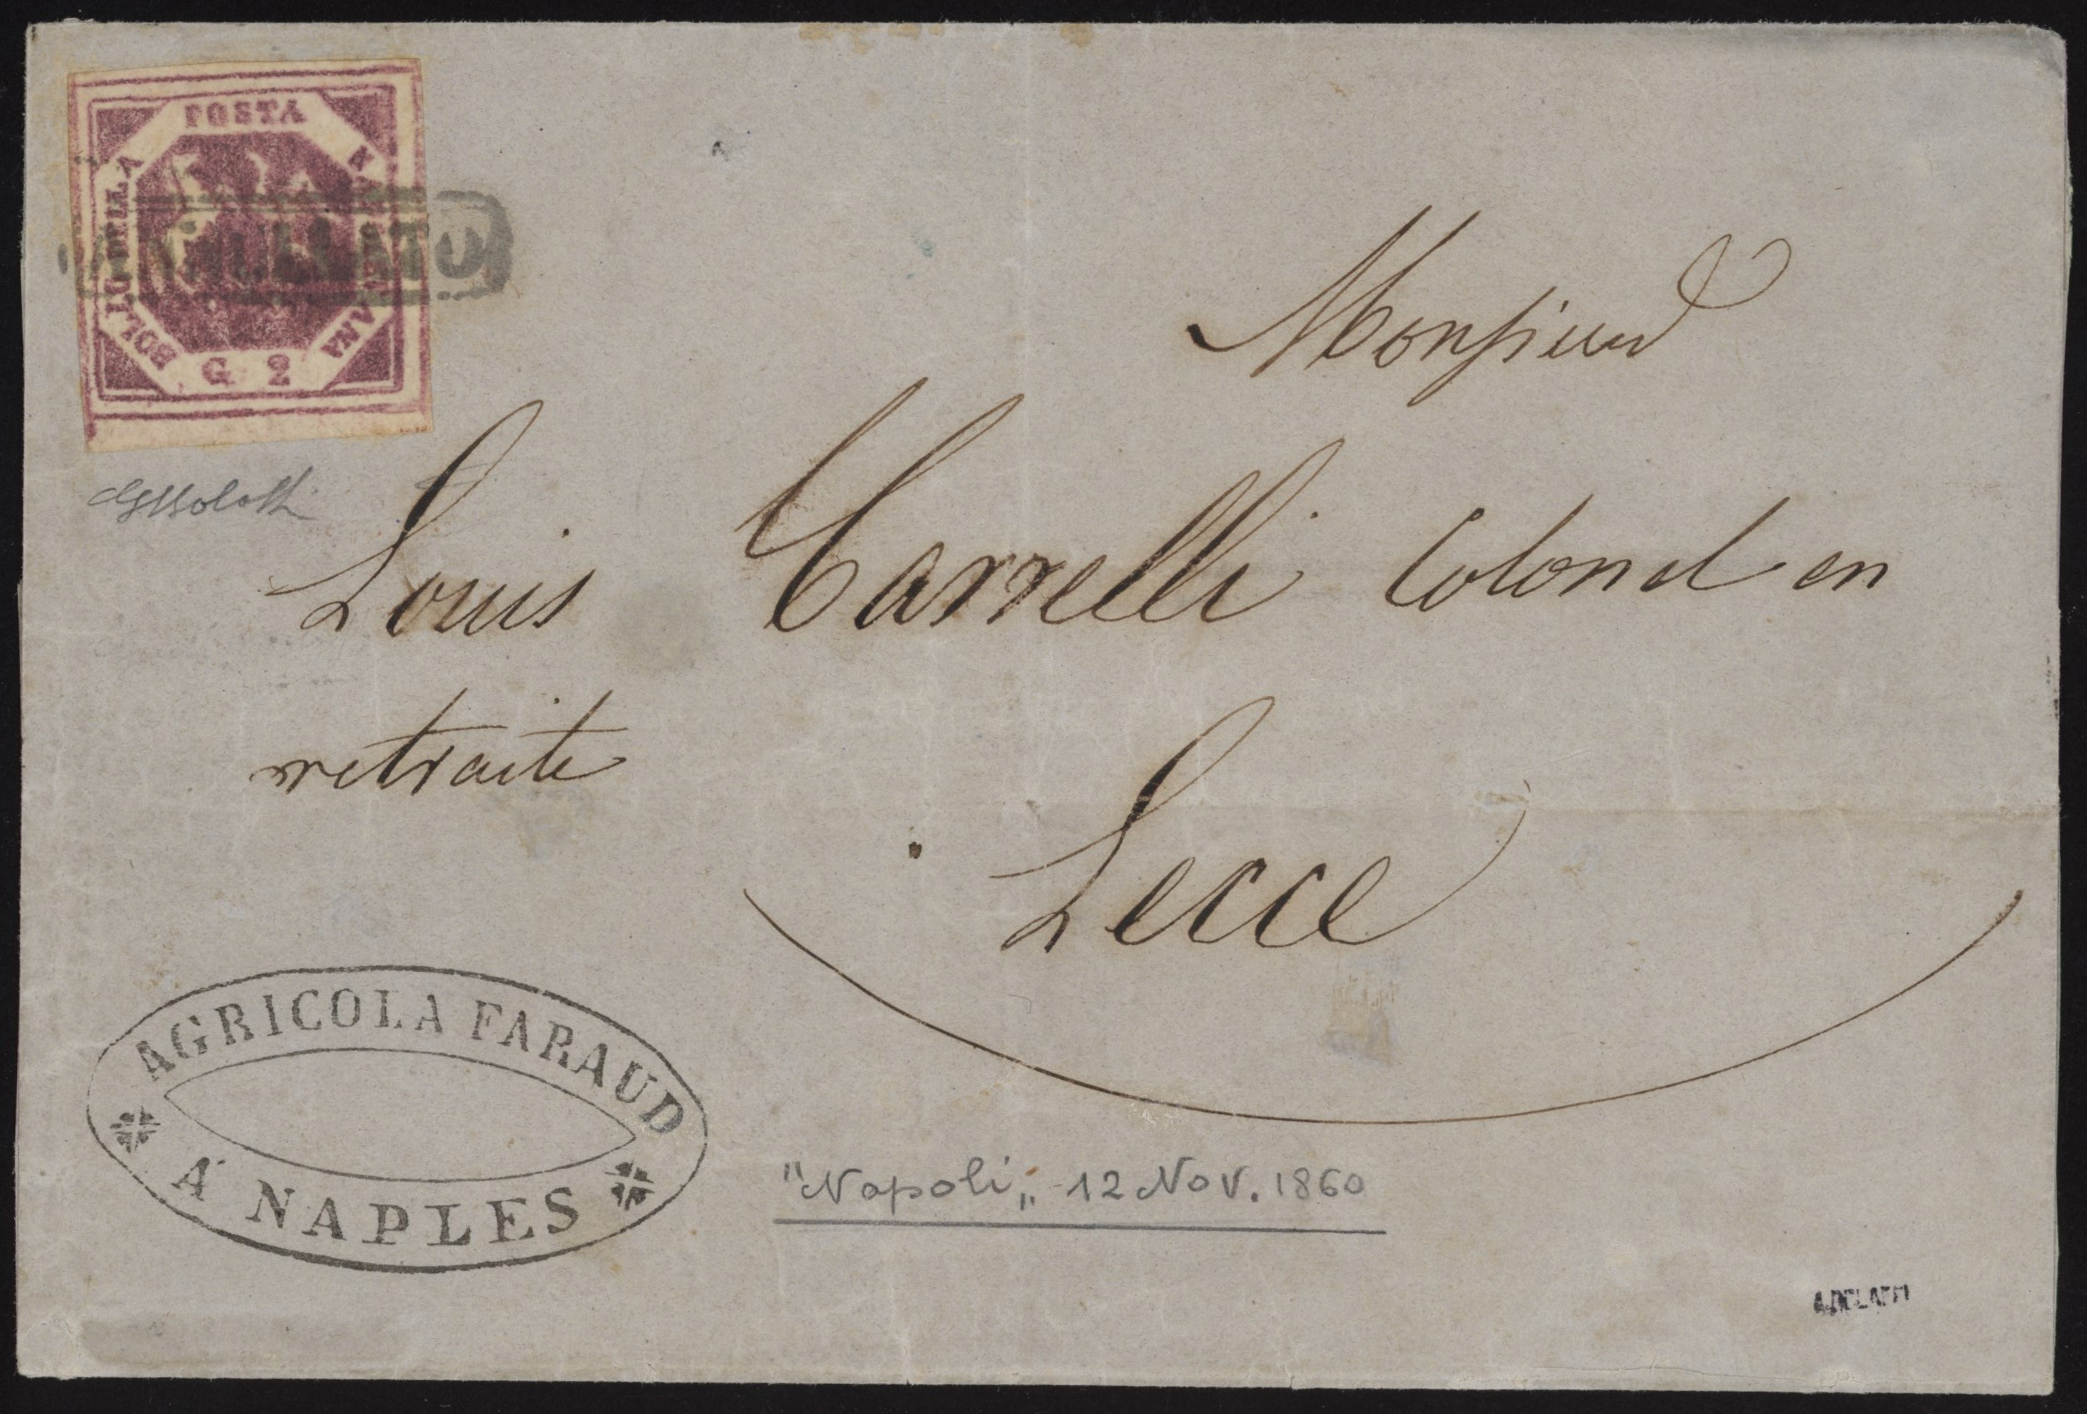 POSTA
BOLLO DELLA
G 2
ANNULLATO
Monsieur
Louis Carrelli Colonel en
retraite
Lecce
AGRICOLA FARAUD
A NAPLES
"Napoli„ 12 Nov. 1860